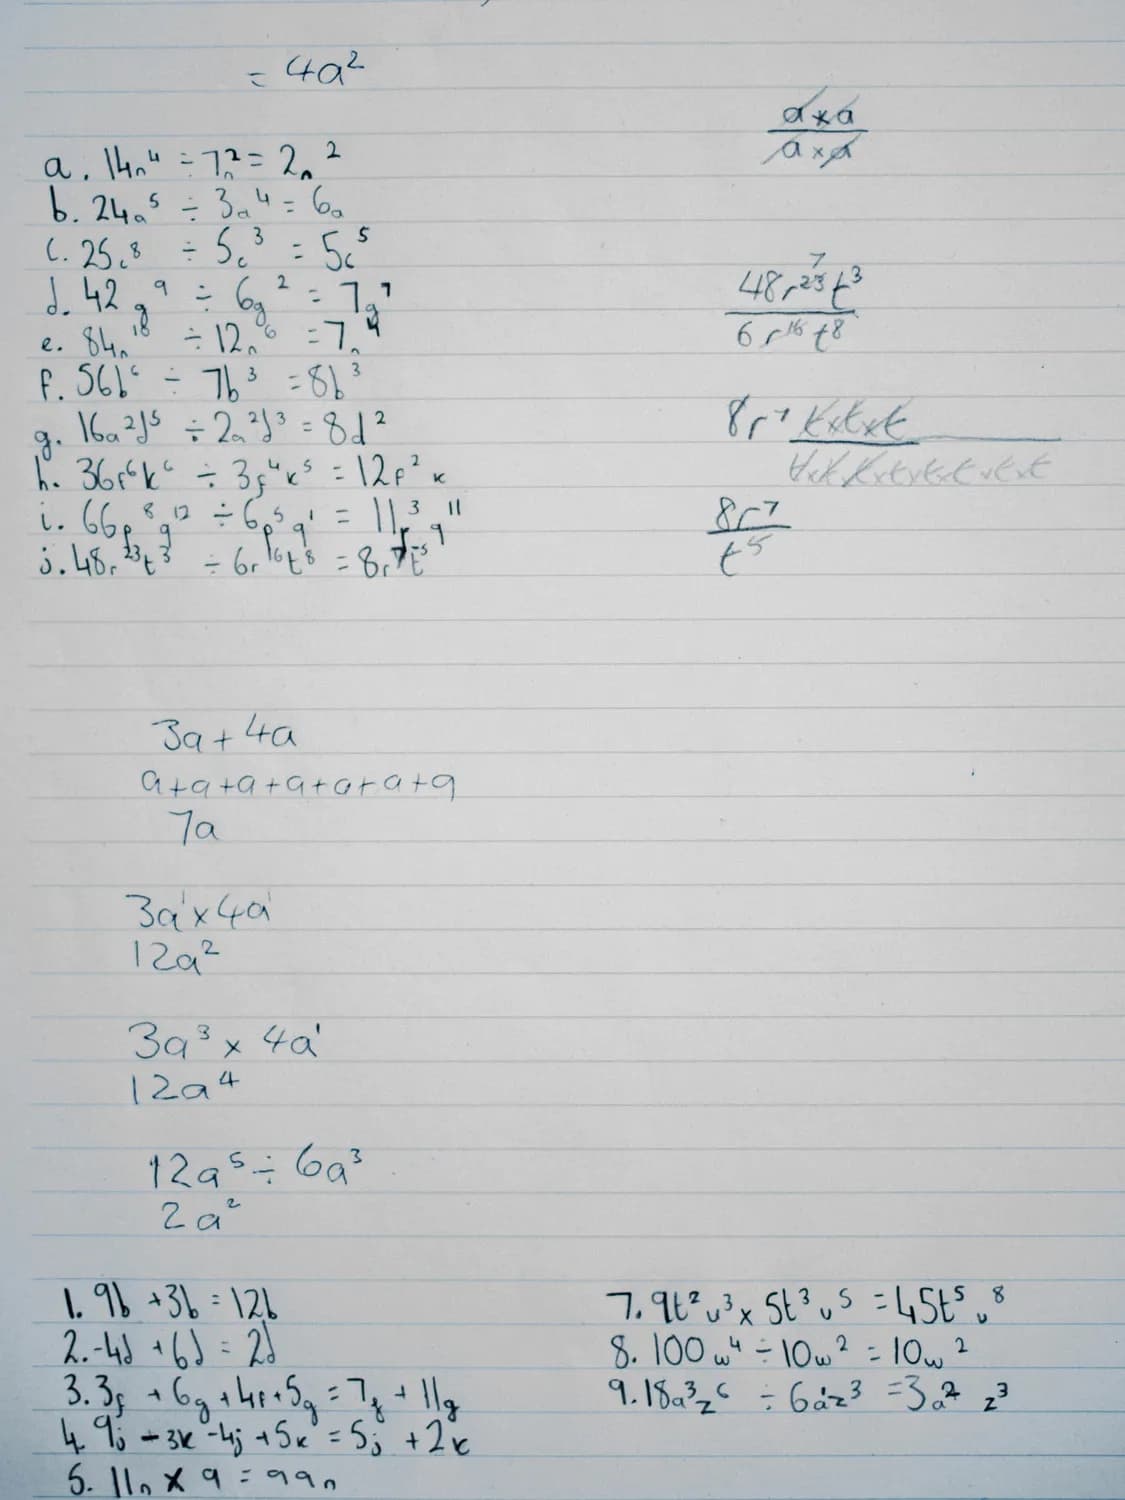 = 4a²
a. 14n⁴ ÷ 7n² = 2n²
b. 24a⁵ ÷ 3a⁴ = 6a
c. 25c⁸ ÷ 5c³ = 5c⁵
d. 42g⁹ ÷ 6g² = 7g⁷
e. 84n¹⁰ ÷ 12n⁶ = 7n⁴
f. 56b⁶ ÷ 7b³ = 8b³
g. 16a²d⁵ ÷ 2a²d³ = 8d²
h. 36f⁶k⁶ ÷ 3f⁴k⁵ = 12f²k
i. 66p⁸q¹² ÷ 6p⁵q¹ = 11p³q¹¹
j. 48r²³t³ ÷ 6r¹⁶t⁸ = 8r⁷t⁻⁵
a × a
a × a
7
48r²³t³
6r¹⁶t⁸
8r⁷ t×t×t
t×t×t×t×t×t×t×t
8r⁷
t⁵
3a + 4a
a+a+a+a+a+a+a
7a
3a¹ × 4a¹
12a²
3a³ × 4a¹
12a⁴
12a⁵ ÷ 6a³
2a²
1. 9b + 3b = 12b
2. -4d + 6d = 2d
3. 3f + 6g + 4f + 5g = 7f + 11g
4. 9j - 3k - 4j + 5k = 5j + 2k
5. 11n × 9 = 99n
7. 9t²u³ × 5t³u⁵ = 45t⁵u⁸
8. 100w⁴ ÷ 10w² = 10w²
9. 18a³z⁶ ÷ 6a¹z³ = 3a² z³